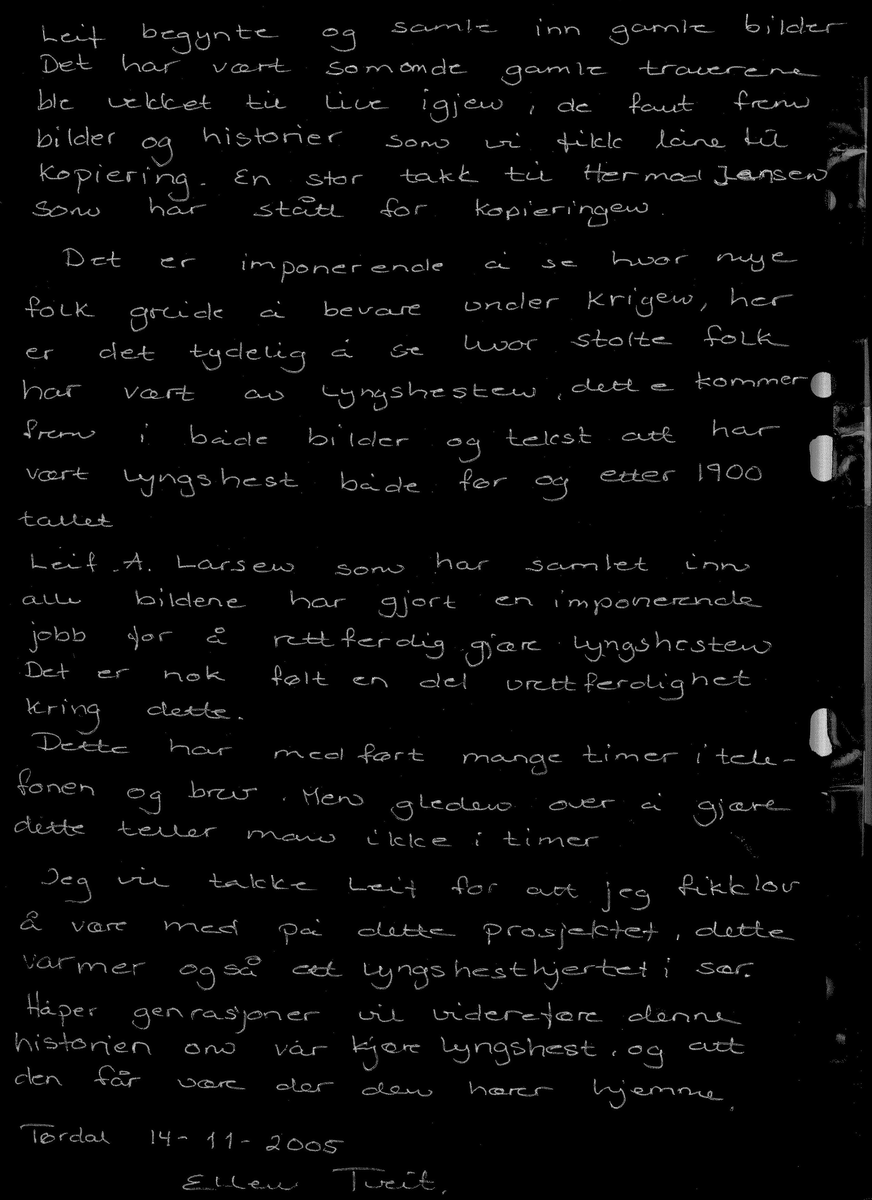 Leif begynte og samle inn gamle bilder
Det har vært somomde gamle traverene
ble vekket til live igjen, de fant frem
bilder og historier som vi fikk låne til
kopiering. En stor takk til Hermod Jensen
som har stått for kopieringen.
Det er imponerende å se hvor mye
folk greide å bevare under krigen, her
er det tydelig å se hvor stolte folk
har vært av Lyngshesten, dette kommer
frem i både bilder og tekst att har
vært Lyngshest både før og etter 1900
tallet
Leif .A. Larsen som har samlet inn
alle bildene har gjort en imponerende
jobb for å rettferdig gjøre Lyngshesten
Det er nok følt en del urettferdighet
kring dette.
Dette har medført mange timer i tele-
fonen og brev. Men gleden over å gjøre
dette teller man ikke i timer
Jeg vil takke Leif for att jeg fikk lov
å være med på dette prosjektet, dette
varmer også et Lyngshesthjertet i sør.
Håper genrasjoner vil videreføre denne
historien om vår kjære Lyngshest, og att
den får være der den hører hjemme.
Tørdal 14-11-2005
Ellen Tveit.